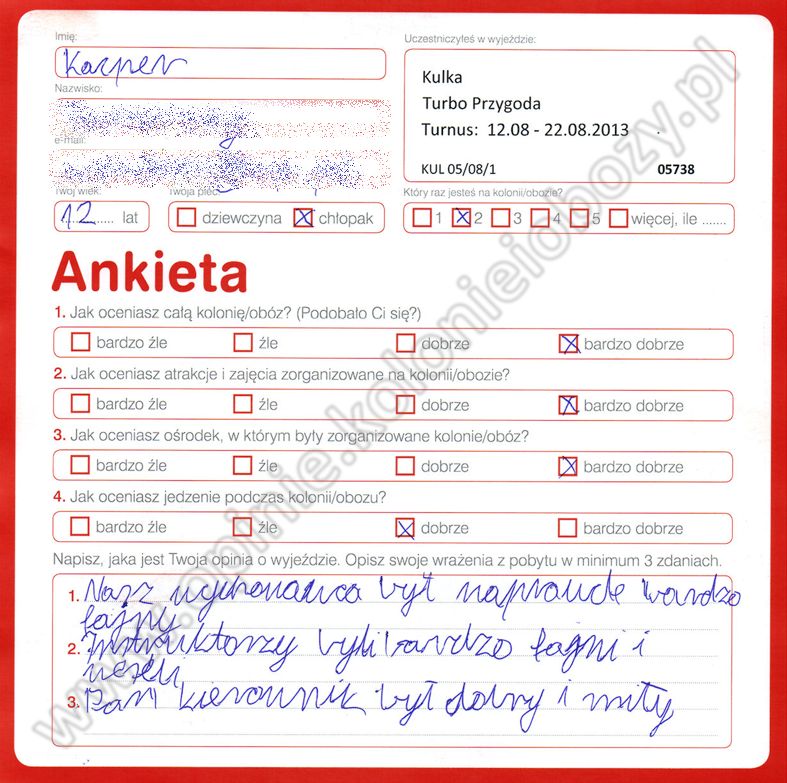 Imię:
Kacper
Nazwisko:
e-mail:
Twój wiek:
Twoja płeć:
12..... lat
dziewczyna
chłopak
Uczestniczyłeś w wyjeździe:
Kulka
Turbo Przygoda
Turnus: 12.08 - 22.08.2013
KUL 05/08/1
05738
Który raz jesteś na kolonii/obozie?
1 2 3 4 5 więcej, ile .......
Ankieta
1. Jak oceniasz całą kolonię/obóz? (Podobało Ci się?)
bardzo źle źle dobrze bardzo dobrze
2. Jak oceniasz atrakcje i zajęcia zorganizowane na kolonii/obozie?
bardzo źle źle dobrze bardzo dobrze
3. Jak oceniasz ośrodek, w którym były zorganizowane kolonie/obóz?
bardzo źle źle dobrze bardzo dobrze
4. Jak oceniasz jedzenie podczas kolonii/obozu?
bardzo źle źle dobrze bardzo dobrze
Napisz, jaka jest Twoja opinia o wyjeździe. Opisz swoje wrażenia z pobytu w minimum 3 zdaniach.
1. Nasz wychonawca był naprawde bardzo
fajny
2. Instruktorzy byli bardzo fajni i
weseli
3. Pan kierownik był dobry i miły
www.opinie.kolonieiobozy.pl